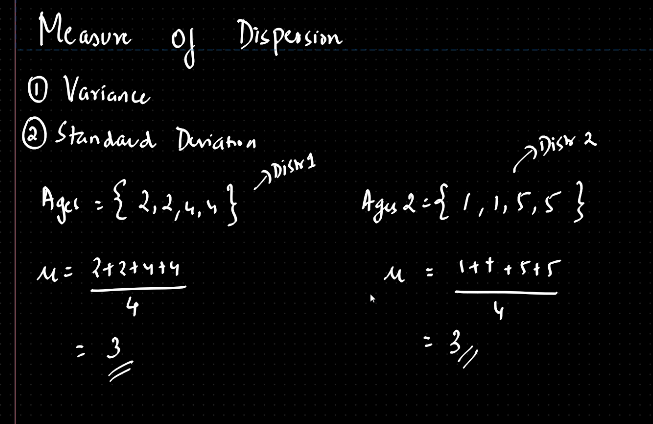 Measure of Dispersion
① Variance
② Standard Deviation
Ages = { 2, 2, 4, 4 } → Distr 1
Ages 2 = { 1, 1, 5, 5 } → Distr 2
μ = 2+2+4+4 / 4
= 3
μ = 1+1+5+5 / 4
= 3